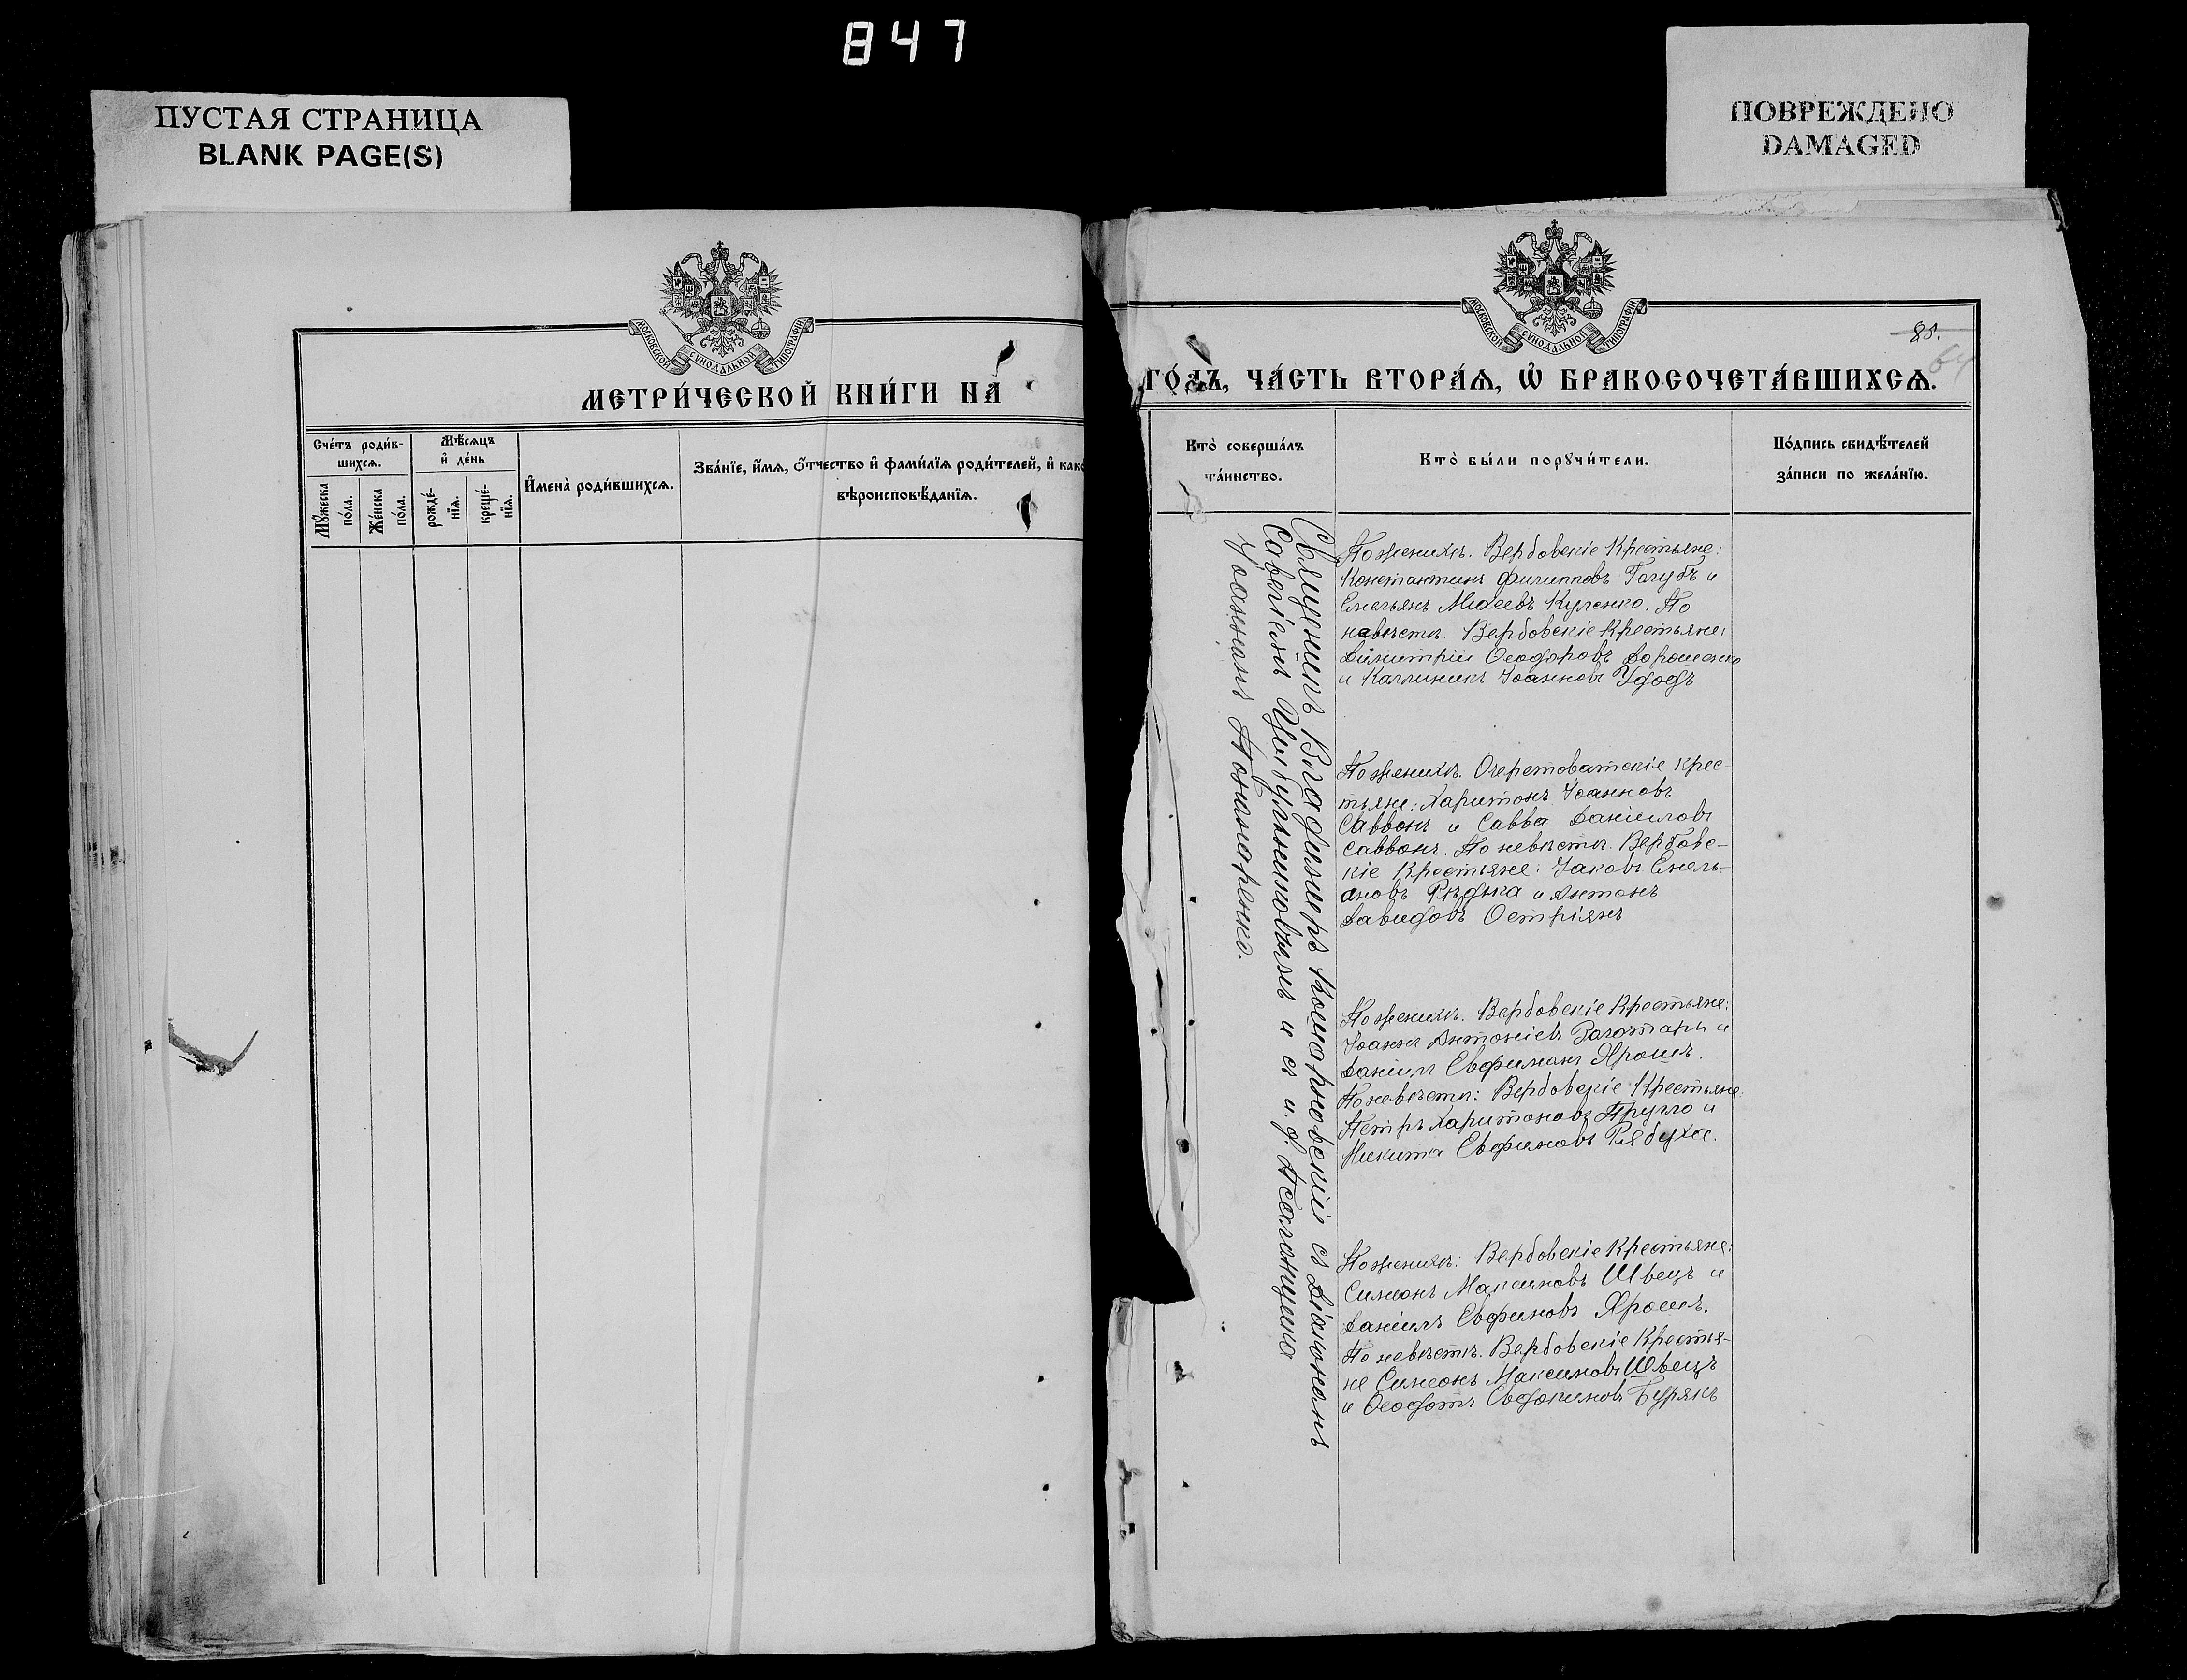 847
ПУСТАЯ СТРАНИЦА
BLANK PAGE(S)
ПОВРЕЖДЕНО
DAMAGED
МОСКОВСКОЙ СѴНОДАЛЬНОЙ ТИПОГРАФІИ
МЕТРИ́ЧЕСКОЙ КНИ́ГИ НА
Сче́тъ роди́в-
шихсѧ.
Мѣ́сѧцъ
и҆ де́нь
Мꙋ́жеска
по́ла.
Же́нска
по́ла.
рожде́-
нїѧ.
креще́-
нїѧ.
И҆мена̀ роди́вшихсѧ.
Зва́нїе, и҆́мѧ, ѻ҆́тчество и҆ фами́лїѧ роди́телей, и҆ како
вѣроисповѣ́данїѧ.
МОСКОВСКОЙ СѴНОДАЛЬНОЙ ТИПОГРАФІИ
85.
64
ГО́ДЪ, ЧА́СТЬ ВТОРА́Ѧ, Ѡ҆ БРАКОСОЧЕТА́ВШИХСѦ.
Кто̀ соверша́лъ
та́инство.
Кто̀ бы́ли порꙋчи́тели.
По́дпись свидѣ́телей
за́писи по жела́нїю.
Священникъ Владимиръ Комарновскій съ Діакономъ
Савелиемъ Цыбульниковымъ и съ и. д. Псаломщика
Іоанномъ Пономаренко.
По женихѣ. Вербовскіе Крестьяне:
Константинъ Филипповъ Голубъ и
Емельянъ Михеевъ Куленко. По
невѣстѣ. Вербовскіе Крестьяне:
Димитрій Ѳеодоровъ Дорошенко
и Каллиникъ Іоанновъ Удодъ
По женихѣ. Очеретоватскіе Крес-
тьяне: Харитонъ Іоанновъ
Саввонъ и Савва Даніиловъ
Саввонъ. По невѣстѣ. Вербовс-
кіе Крестьяне: Іаковъ Емель-
яновъ Рѣдька и Антонъ
Давидовъ Остріянъ
По женихѣ. Вербовскіе Крестьяне:
Іоаннъ Антоніевъ и
Даніилъ Евфимовъ Ярошъ.
По невѣстѣ: Вербовскіе Крестьяне:
Петръ Харитоновъ Пругло и
Никита Евфимовъ Рябуха.
По женихѣ: Вербовскіе Крестьяне:
Симеонъ Максимовъ Швецъ и
Даніилъ Евфимовъ Ярошъ.
По невѣстѣ. Вербовскіе Крестья-
не Симеонъ Максимовъ Швецъ
и Ѳеодотъ Евдокимовъ Бурякъ